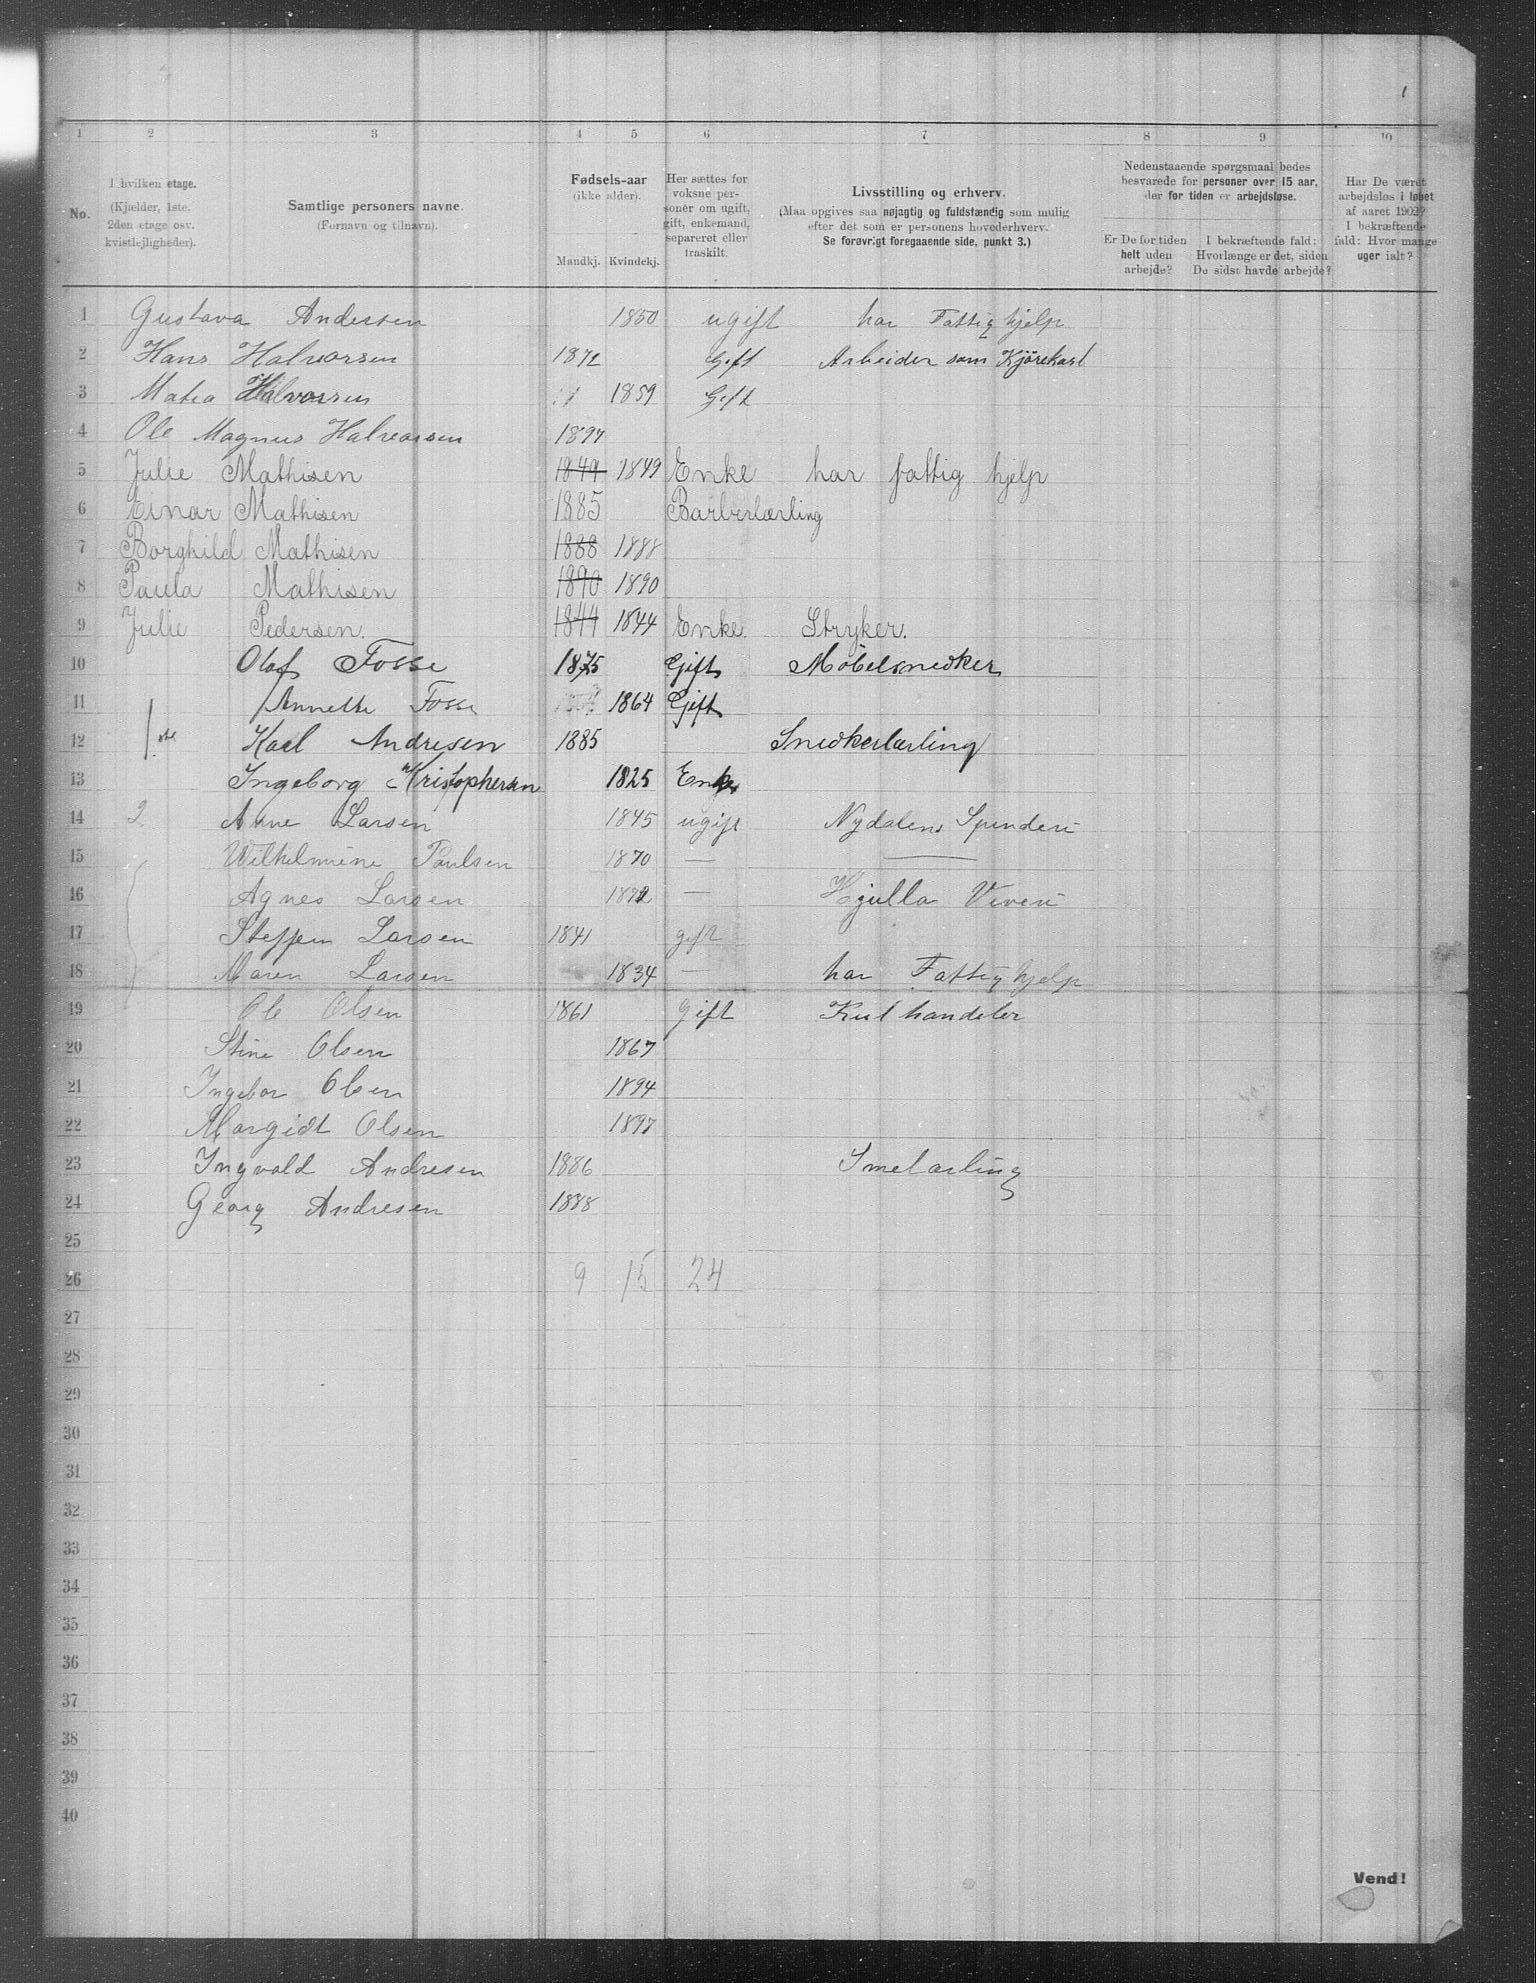 1
1 2 3 4 5 6 7 8 9 10
No.
I hvilken etage.
(Kjælder, 1ste.
2den etage osv.
kvistlejligheder).
Samtlige personers navne.
(Fornavn og tilnavn).
Fødsels-aar
(ikke alder).
Mandkj. Kvindekj.
Her sættes for
voksne per-
soner om ugift,
gift, enkemand,
separeret eller
fraskilt.
Livsstilling og erhverv.
(Maa opgives saa nøjagtig og fuldstændig som mulig
efter det som er personens hovederhverv.
Se forøvrigt foregaaende side, punkt 3.)
Nedenstaaende spørgsmaal bedes
besvarede for personer over 15 aar,
der for tiden er arbejdsløse.
Er De for tiden
helt uden
arbejde?
I bekræftende fald:
Hvorlænge er det, siden
De sidst havde arbejde?
Har De været
arbejdsløs i løbet
af aaret 1902?
I bekræftende
fald: Hvor mange
uger ialt?
1 Gustava Andersen 1850 ugift har Fattighjelp
2 Hans Halvorsen 1872 Gift Arbeider som Kjørekarl
3 Matea Halvorsen 1859 Gift
4 Ole Magnus Halvorsen 1897
5 Julie Mathisen 1849 1849 Enke har fattig hjelp
6 Einar Mathisen 1885 Barberlærling
7 Borghild Mathisen 1888 1888
8 Paula Mathisen 1890 1890
9 Julie Pedersen. 1844 1844 Enke. Stryker.
10 Olaf Fosse 1875 Gift Møbelsnedker
11 Annette Fosse 1864 Gift
12 1ste Karl Andresen 1885 Snedkerlærling
13 Ingeborg Kristophersen 1825 Enke
14 2 Anne Larsen 1845 ugift Nydalens Spinderi
15 Wilhelmine Paulsen 1870 — —
16 Agnes Larsen 1892 — Hjulla Veveri
17 Steffen Larsen 1841 gift
18 Maren Larsen 1834 — har Fattighjelp
19 Ole Olsen 1861 Gift Kulhandeler
20 Stine Olsen 1867
21 Ingebor Olsen 1894
22 Margidt Olsen 1897
23 Ingvald Andresen 1886 Smelarling
24 Georg Andresen 1888
25
26 9 15 24
27
28
29
30
31
32
33
34
35
36
37
38
39
40
Vend!